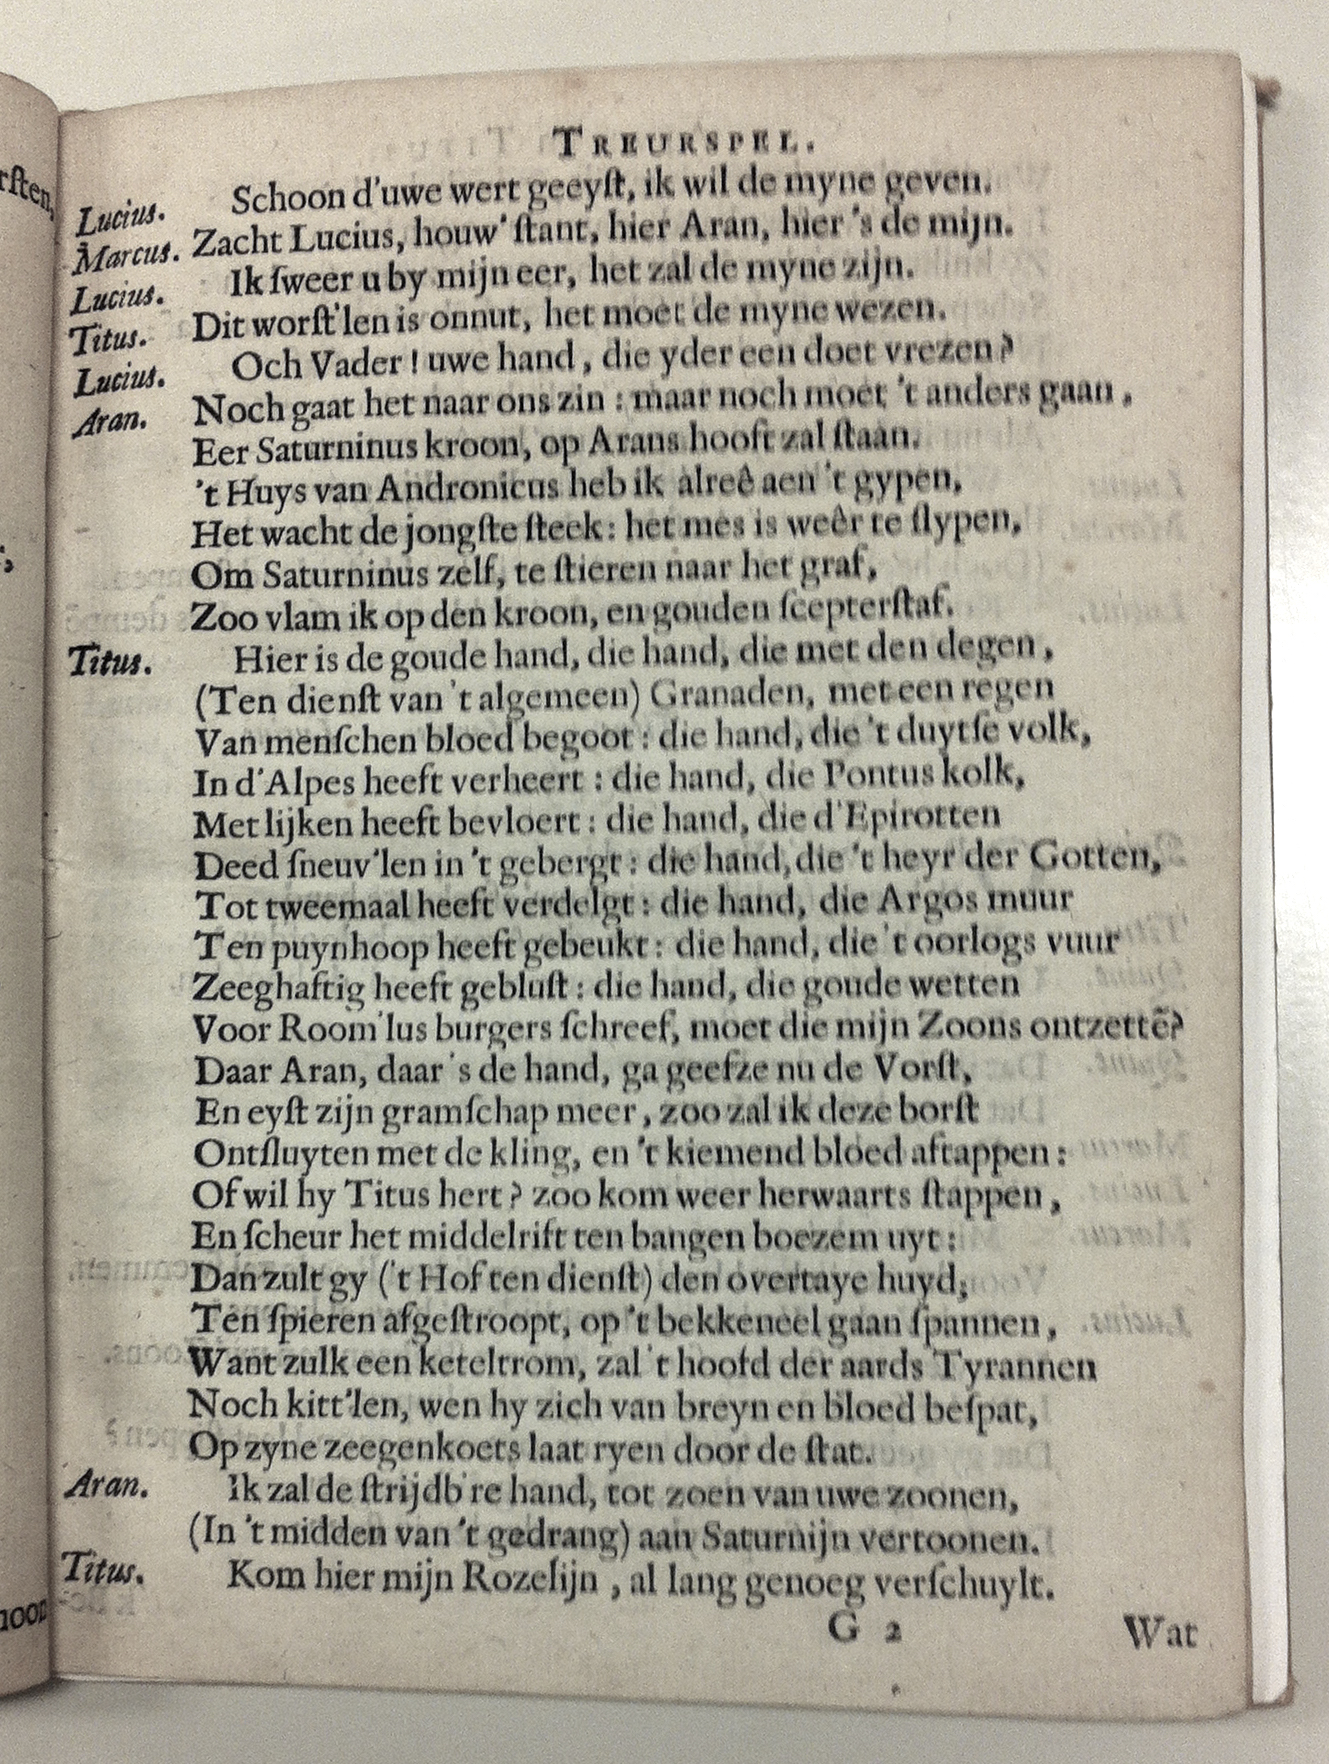 rſten,
noon
TREURSPEL.
Lucius. Schoon d'uwe wert geeyſt, ik wil de myne geven.
Marcus. Zacht Lucius, houw' ſtant, hier Aran, hier 's de mijn.
Lucius. Ik ſweer u by mijn eer, het zal de myne zijn.
Titus. Dit worſt'len is onnut, het moet de myne wezen.
Lucius. Och Vader! uwe hand, die yder een doet vrezen?
Aran. Noch gaat het naar ons zin: maar noch moet 't anders gaan,
Eer Saturninus kroon, op Arans hooft zal ſtaan.
't Huys van Andronicus heb ik alreê aen 't gypen,
Het wacht de jongſte ſteek: het mes is weêr te ſlypen,
Om Saturninus zelf, te ſtieren naar het graf,
Zoo vlam ik op den kroon, en gouden ſcepterſtaf.
Titus. Hier is de goude hand, die hand, die met den degen,
(Ten dienſt van 't algemeen) Granaden, met een regen
Van menſchen bloed begoot: die hand, die 't duytſe volk,
In d'Alpes heeft verheert: die hand, die Pontus kolk,
Met lijken heeft bevloert: die hand, die d'Epirotten
Deed ſneuv'len in 't gebergt: die hand, die 't heyr der Gotten,
Tot tweemaal heeft verdelgt: die hand, die Argos muur
Ten puynhoop heeft gebeukt: die hand, die 't oorlogs vuur
Zeeghaftig heeft gebluſt: die hand, die goude wetten
Voor Room'lus burgers ſchreef, moet die mijn Zoons ontzettē?
Daar Aran, daar 's de hand, ga geefze nu de Vorſt,
En eyſt zijn gramſchap meer, zoo zal ik deze borſt
Ontſluyten met de kling, en 't kiemend bloed aftappen:
Of wil hy Titus hert? zoo kom weer herwaarts ſtappen,
En ſcheur het middelrift ten bangen boezem uyt:
Dan zult gy ('t Hof ten dienſt) den overtaye huyd,
Ten ſpieren afgeſtroopt, op 't bekkeneel gaan ſpannen,
Want zulk een keteltrom, zal 't hoofd der aards Tyrannen
Noch kitt'len, wen hy zich van breyn en bloed beſpat,
Op zyne zeegenkoets laat ryen door de ſtat.
Aran. Ik zal de ſtrijdb're hand, tot zoen van uwe zoonen,
(In 't midden van 't gedrang) aan Saturnijn vertoonen.
Titus. Kom hier mijn Rozelijn, al lang genoeg verſchuylt.
G 2 Wat